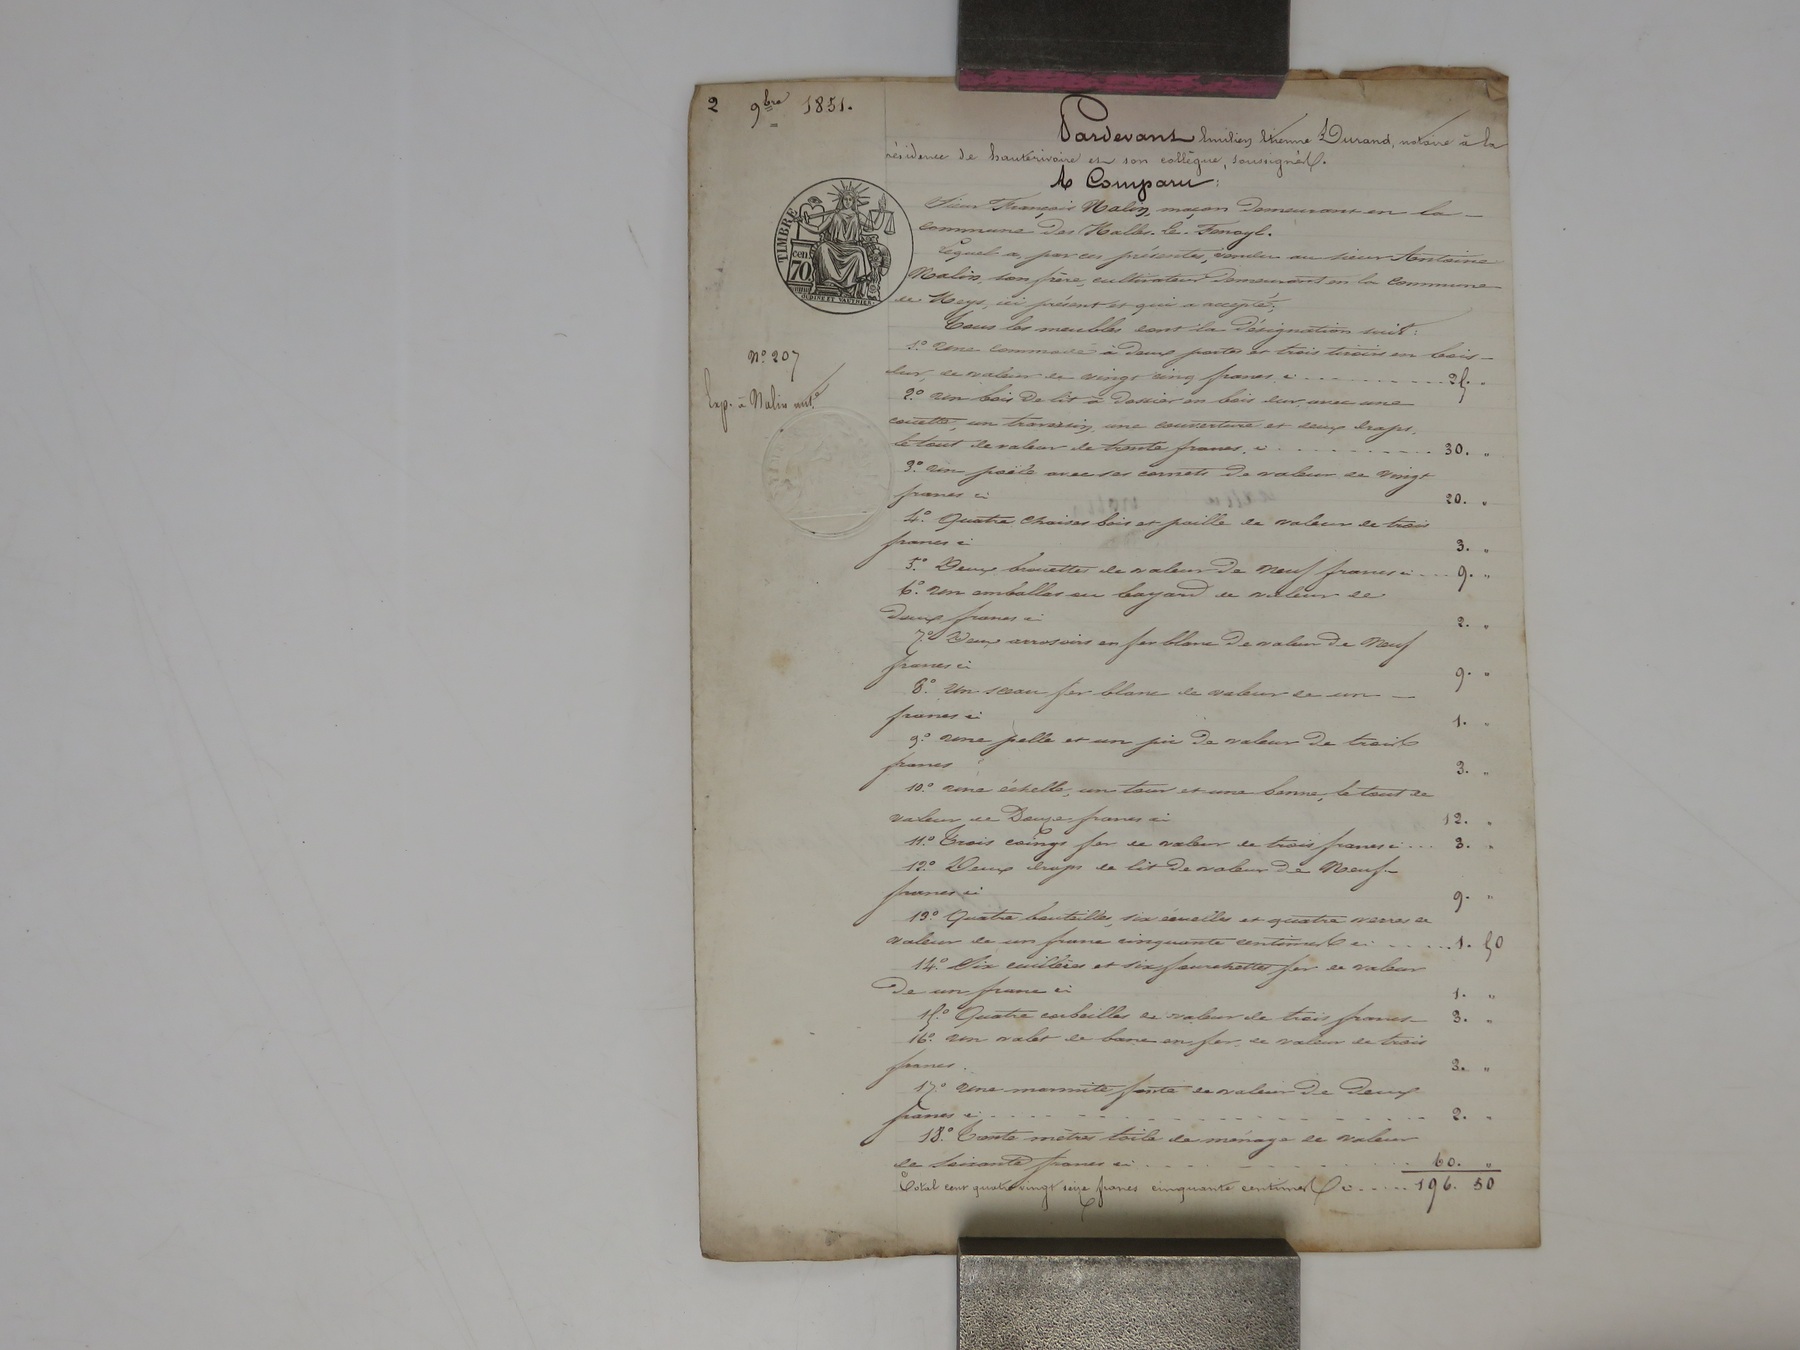 2 9bre 1851.
Pardevant Emilien Etienne Durand, notaire à la
résidence de hauterivoire et son collègue, soussignés.
A Comparu:
Sieur François Nalin, maçon demeurant en la
commune des Halles-le-Fenoyl.
Lequel a, par ces présentes, vendu au sieur Antoine
Nalin, son frère, cultivateur demeurant en la commune
de Meys, ici présent et qui a accepté;
TIMBRE
70 cen
OUDINE ET VAUTHIER
Tous les meubles dont la désignation suit:
No 207
Exp. à Nalin
1o Une commode à deux portes et trois tiroirs en bois
dur, de valeur de vingt cinq francs ci 25. "
2o Un bois de lit à dossier en bois dur, avec une
couette, un traversin, une couverture et deux draps,
le tout de valeur de trente francs, ci 30. "
3o Un poële avec ses cornets de valeur de vingt
francs ci 20. "
4o Quatre chaises bois et paille de valeur de trois
francs ci 3. "
5o Deux brouettes de valeur de neuf francs ci 9. "
6o Un emballes ou bayard de valeur de
deux francs ci 2. "
7o Deux arrosoirs en fer blanc de valeur de neuf
francs ci 9. "
8o Un sceau fer blanc de valeur de un
francs ci 1. "
9o Une pelle et un pic de valeur de trois
francs 3. "
10o Une échelle, un tour et une benne, le tout de
valeur de Douze francs ci 12. "
11o Trois coings fer de valeur de trois francs ci 3. "
12o Deux draps de lit de valeur de Neuf
francs ci 9. "
13o Quatre bouteilles, six écuelles et quatre verres de
valeur de un franc cinquante centimes ci 1. 50
14o Six cuillères et six fourchettes fer de valeur
de un franc ci 1. "
15o Quatre corbeilles de valeur de trois francs 3. "
16o Un valet de banc en fer, de valeur de trois
francs. 3. "
17o Une marmite fonte de valeur de deux
francs ci 2. "
18o Trente mètres toile de ménage de valeur
de soixante francs ci 60. "
Total cent quatre vingt seize francs cinquante centimes ci 196. 50